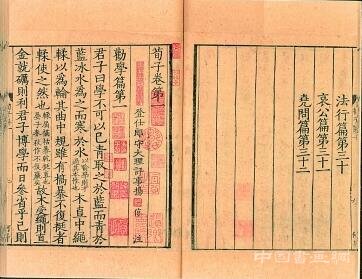 法行篇第三十
哀公篇第三十一
堯問篇第三十二
荀子卷第一
登仕郎守大理評事楊 倞 注
勸學篇第一
君子曰學不可以已青取之於藍而青於
藍冰水為之而寒於水以喻學則才過其本性也木直中繩
輮以為輪其曲中規雖有槁暴不復挺者
輮使之然也輮屈槁枯暴乾挺直也晏子春秋作不復贏矣故木受繩則直
金就礪則利君子博學而日參省乎己則
中國書畫網